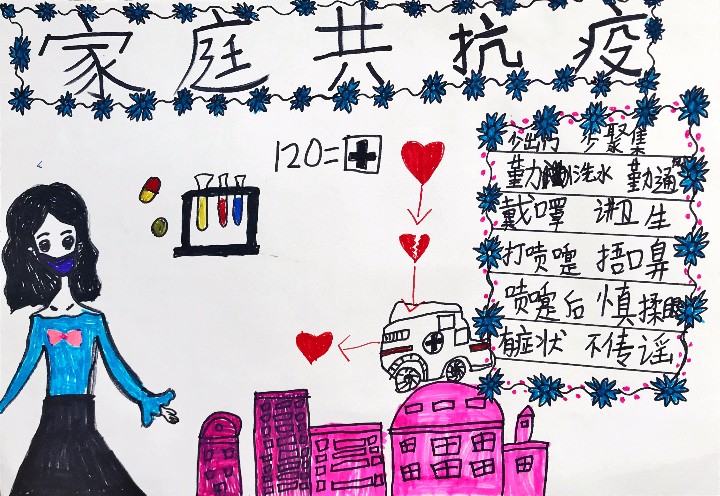 家庭共抗疫
120=
少出门 少聚集
勤洗水 勤通
戴口罩 讲卫生
打喷嚏 捂口鼻
喷嚏后 慎揉眼
有症状 不传谣